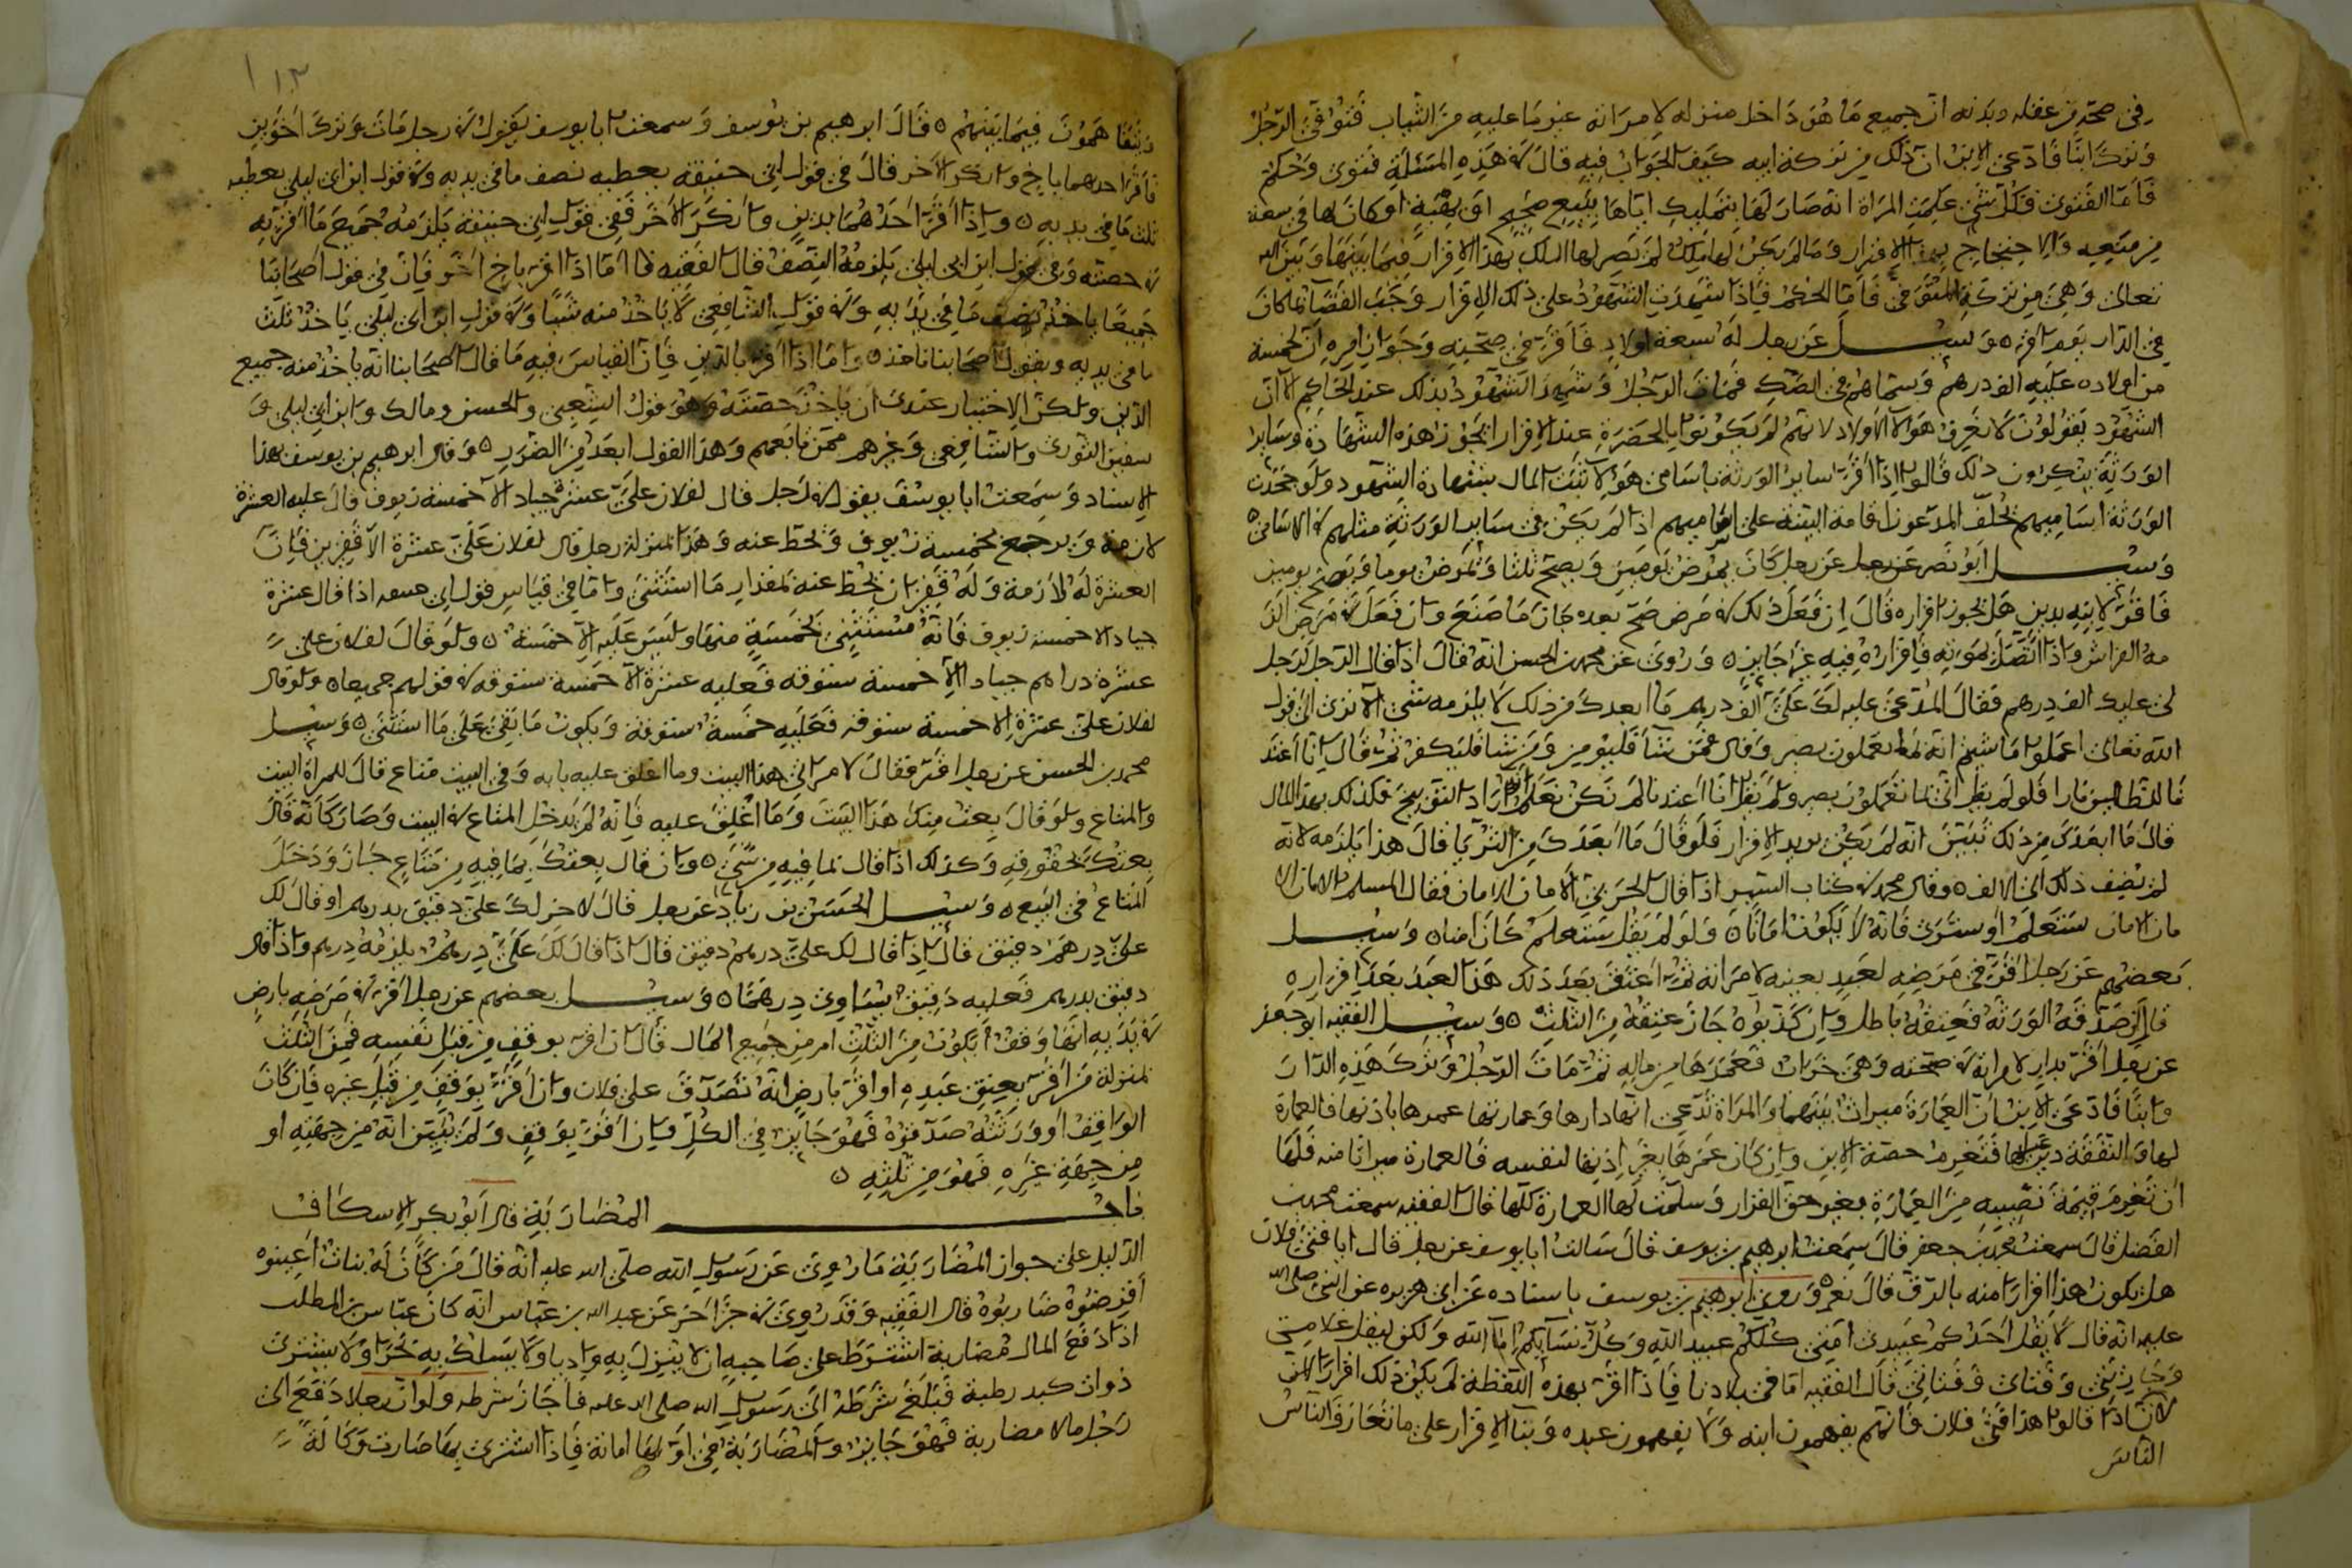 في صحة من عقله وبدنه ان جميع ما هو داخل منزله لامراته غير ما عليه من الثياب فتوفى الرجل
وترك ابنا فادعى الابن ان ذلك من تركة ابيه كيف الجواب فيه قال في هذه المسئلة فتوى وحكم
فاما الفتوى فكل شي علمت المراة انه صار لها بتمليك اياها ببيع صحيح او بهبة او كان لها في سعة
من منعه والاحتجاج بهذا الاقرار وما لم يكن لها ملك لم يصر لها الملك بهذا الاقرار فيما بينها وبين الله
تعالى وهي من تركة المتوفى فاما الحكم فاذا شهدت الشهود على ذلك الاقرار وجب القضا بما كان
في الدار يوم اقر وسئل عن رجل له سبعة اولاد فاقر في صحته وجواز امره ان لخمسة
من اولاده عليه الف درهم وسماهم في الصك فمات الرجل وشهد الشهود بذلك عند الحاكم الا ان
الشهود يقولون لا نعرف هولا الاولاد لانهم لم يكونوا بالحضرة عند الاقرار اتجوز هذه الشهادة وساير
الورثة ينكرون ذلك قالوا اذا اقر ساير الورثة باسامي هولا ثبت المال بشهادة الشهود ولو جحدت
الورثة اساميهم تحلف المدعون اقامة البينة على اساميهم اذا لم يكن في ساير الورثة مثلهم في الاسامي
وسئل ابو نصر عن رجل كان يمرض يومين ويصح ثلثا ويمرض يوما ويصح يومين
فاقر لابنه بدين هل يجوز اقراره قال ان فعل ذلك في مرض صح بعده جاز ما صنع وان فعل في مرض الز
مه الفراش واذا اتصل بموته فاقراره فيه غير جايز وروي عن محمد بن الحسن انه قال اذا قال الرجل لرجل
لي عليك الف درهم فقال المدعى عليه لك علي الف درهم ما ابعدك من ذلك لا يلزمه شي الا ترى الى قول
الله تعالى اعملوا ما شيتم انه بما تعملون بصير وقال فمن شا فليومن ومن شا فليكفر ثم قال انا اعتد
قال ما ابعدك من ذلك تبين انه لم يكن يريد الاقرار فلو قال ما ابعدك من الثريا قال هذا يلزمه لانه
لم يضف ذلك الى الالف وقال محمد في كتاب السير اذا قال الحربي الامان الامان فقال المسلم الامان الا
مان الامان ستعلم او سترى فانه لا يكون امانا ولو لم يقل ستعلم كان امنا وسئل
بعضهم عن رجل اقر في مرضه لعبد بعينه لامراته ثم اعتق بعد ذلك هذا العبد بعد اقراره
قال ان صدقه الورثة فعتقه باطل وان كذبوه جاز عتقه من الثلث وسئل الفقيه ابو جعفر
عن رجل اقر بدار لامراته في صحته وهي خراب فعمرها من ماله ثم مات الرجل وترك هذه الدار
وابنا فادعى الابن ان العمارة ميراث بينهما والمراة تدعي انها دارها وعمارتها عمرها باذنها فالعمارة
لها والنفقة دين عليها فتغرم حصة الابن وان كان عمرها بغير اذنها لنفسه فالعمارة ميراثا منه فلها
ان تغرم قيمة نصيبه من العمارة بغير حق القرار وسلمت لها العمارة كلها قال الفقيه سمعت محمد بن
الفضل قال سمعت محمد بن جعفر قال سمعت ابرهيم بن يوسف قال سالت ابا يوسف عن رجل قال ابا فتى فلان
هل يكون هذا اقرارا منه بالرق قال نعم وروى ابرهيم بن يوسف باسناده عن ابي هريرة عن النبي صلى الله
عليه انه قال لا يقل احدكم عبدي امتي كلكم عبيد الله وكل نسايكم اماء الله ولكن ليقل غلامي
وجاريتي وفتاي وفتاتي قال الفقيه اما في بلادنا فاذا اقر بهذه اللفظة لم يكن ذلك اقرارا
لان اذا قالوا هذا فتى فلان فانهم يفهمون ابنه ولا يفهمون عبده وبنا الاقرار على ما تعارفه الناس
الناس
١١٣
يتفاهمون فيما بينهم قال ابرهيم بن يوسف وسمعت ابا يوسف يقول في رجل مات وترك اخوين
فاقر احدهما باخ وانكر الاخر قال في قول ابي حنيفة يعطيه نصف ما في يديه وفي قول ابن ابي ليلى يعطيه
ثلث ما في يديه واذا اقر احدهما بدين وانكر الاخر ففي قول ابي حنيفة يلزمه جميع ما اقر به
في حصته وفي قول ابن ابي ليلى يلزمه النصف قال الفقيه اما اذا اقر باخ اخر فان في قول اصحابنا
جميعا ياخذ نصف ما في يديه وفي قول الشافعي لا ياخذ منه شيا وفي قول ابن ابي ليلى ياخذ ثلث
ما في يديه وبقول اصحابنا ناخذ واما اذا اقر بالدين فان القياس فيه ما قال اصحابنا انه ياخذ منه جميع
الدين ولكن الاختيار عندي ان ياخذ حصته وهو قول الشعبي والحسن ومالك وابن ابي ليلى و
سفين الثوري والشافعي وغيرهم ممن تابعهم وهذا القول ابعد من الضرر وقال ابرهيم بن يوسف بهذا
الاسناد وسمعت ابا يوسف يقول في رجل قال لفلان علي عشرة جياد الا خمسة زيوف قال عليه العشرة
لازمة ويرجع بخمسة زيوف وتحط عنه وهذا بمنزلة رجل قال لفلان علي عشرة الا قفيزين فان
العشرة له لازمة وله قفيزان تحط عنه بمقدار ما استثنى واما في قياس قول ابي حنيفة اذا قال عشرة
جياد الا خمسة زيوف فانه مستثنى بخمسة منها وليس عليه الا خمسة ولو قال لفلان علي
عشرة دراهم جياد الا خمسة ستوقة فعليه عشرة الا خمسة ستوقة في قولهم جميعا ولو قال
لفلان علي عشرة الا خمسة ستوقة فعليه خمسة ستوقة ويكون ما بقي على ما استثنى وسئل
محمد بن الحسن عن رجل اقر فقال لامراتي هذا البيت وما اغلق عليه بابه وفي البيت متاع قال للمراة البيت
والمتاع ولو قال بعت منك هذا البيت وما اغلق عليه فانه لم يدخل المتاع في البيت وصار كانه قال
بعتك بحقوقه وكذلك اذا قال بما فيه من شي وان قال بعتك بما فيه من متاع جاز ودخل
المتاع في البيع وسئل الحسن بن زياد عن رجل قال لاخر لك علي دقيق بدرهم او قال لك
علي درهم دقيق قال اذا قال لك علي درهم دقيق قال اذا قال لك علي درهم يلزمه درهم واذا قال
دقيق بدرهم فعليه دقيق يساوي درهما وسئل بعضهم عن رجل اقر في مرضه بارض
في يديه انها وقف ايكون من الثلث ام من جميع المال قال ان اقر بوقف من قبل نفسه فمن الثلث
بمنزلة من اقر بعتق عبده او اقر بارض انه تصدق على فلان وان اقر بوقف من قبل غيره فان كان
الواقف او ورثته صدقوه فهو جايز في الكل وان اقر بوقف ولم يتبين انه من جهته او
من جهة غيره فهو من ثلثه
باب المضاربة قال ابو بكر الاسكاف
الدليل على جواز المضاربة ما روي عن رسول الله صلى الله عليه انه قال من كان له بنات اعينوه
اقرضوه ضاربوه قال الفقيه وقد روي في خبر اخر عن عبد الله بن عباس انه كان عباس بن المطلب
اذا دفع المال مضاربة اشترط على صاحبه ان لا ينزل به واديا ولا يسلك به بحرا ولا يشترى
ذوات كبد رطبة فبلغ شرطه الى رسول الله صلى الله عليه فاجاز شرطه ولو ان رجلا دفع الى
رجل مالا مضاربة فهو جايز والمضاربة في اولها امانة فاذا اشترى بها صارت وكالة